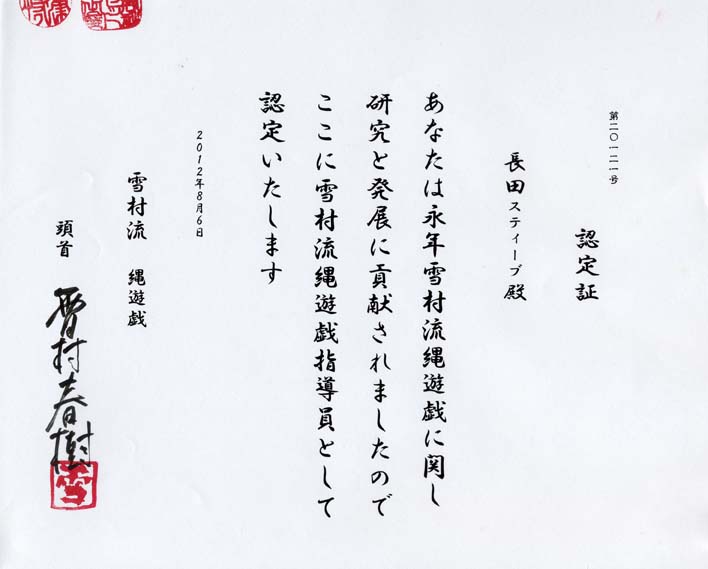 第二〇一二一号
認定証
長田スティーブ殿
あなたは永年雪村流縄遊戯に関し
研究と発展に貢献されましたので
ここに雪村流縄遊戯指導員として
認定いたします
2012年8月6日
雪村流 縄遊戯
頭首 雪村春樹
雪